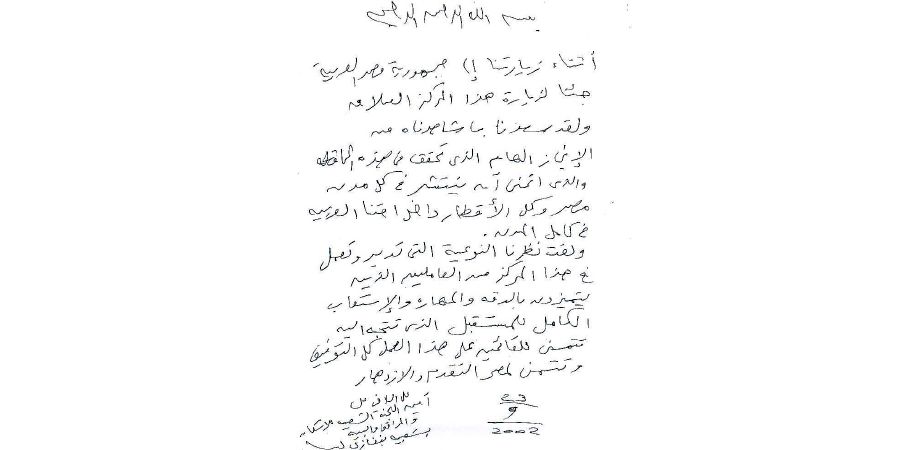 بسم الله الرحمن الرحيم
أثناء زيارتنا إلى جمهورية مصر العربية
جئنا لزيارة هذا المركز العملاق
ولقد سعدنا بما شاهدناه من
الإنجاز الهام الذى تحقق في هذه
والذى اتمنى أن ينتشر في كل مدن
مصر وكل الأقطار داخل امتنا العربية
في كامل المدن.
ولفت نظرنا النوعية التى تدير وتعمل
في هذا المركز من العاملين الذين
يتميزون بالدقه والمهاره والإستعاب
الكامل للمستقبل الذى تتجه اليه
نتمنى للقائمين على هذا العمل كل التوفيق
ونتمنى لمصر التقدم والازدهار
أمين اللجنة الشعبية
والمرافق
بشعبية بنغازى
23
9
2002